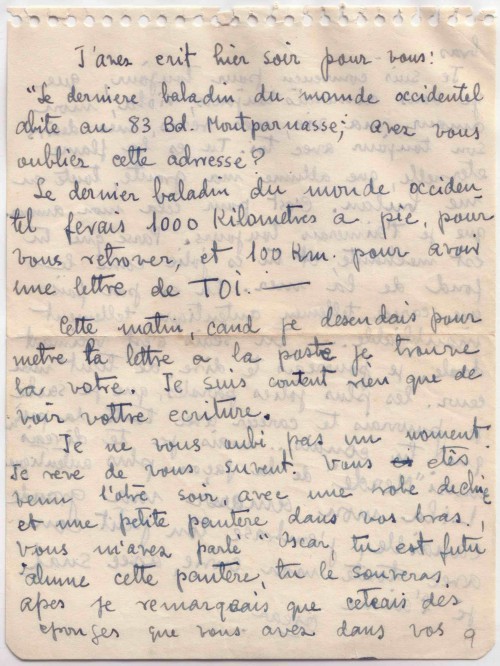 J'avez erit hier soir pour vous:
"Le derniere baladin du monde occidentel
abite au 83 Bd. Montparnasse; avez vous
oublier cette adresse?
Le dernier baladin du monde occiden
tel ferais 1000 Kilometres à pie, pour
vous retrover, et 100 Km. pour avoir
une lettre de TOi. —
Cette matin, cand je desendais pour
metre ta lettre a la poste je trouve
la votre. Je suis content rien que de
voir vottre ecriture.
Je ne vous oubi pas un moment.
Je reve de vous suvent. Vous etês
venu l'otre soir, avec une robe
et une petite pantere dans vos bras,
vous m'avez parlé "Oscar, tu est futu
alune cette pantere, tu le souveras,
apes je remarquais que ceteais des
eponges que vous avez dans vos 9